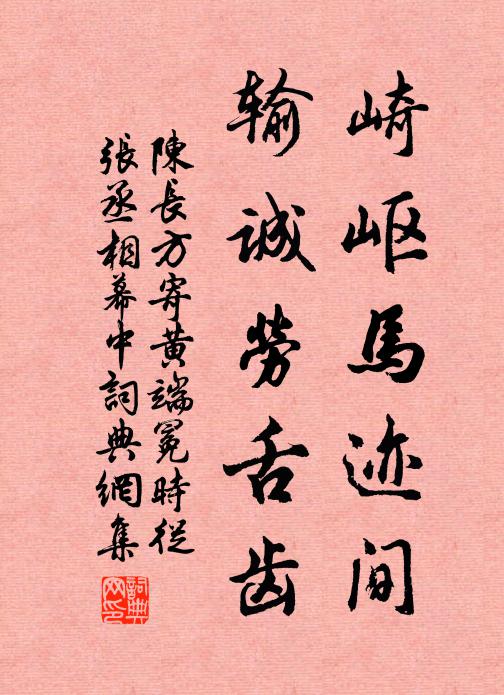 崎岖馬迹间
输诚勞舌齿
陳長方寄黄端冕時從
張丞相幕中詞典網集
詞典网印